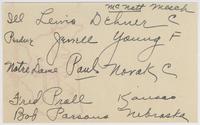 McNatt Mosch
Ill Lewis Dehner C
Purdue Jewell Young F
Notre Dame Paul Novak C
Fred Pralle Kansas
Bob Parsons Nebraska